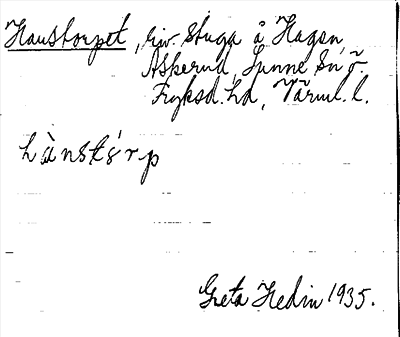 Hanstorpet, riv. stuga å Hagen,
Askerud, Sunne sn ö.
Fryksd. hd, Värml. l.
hànstórp
Greta Hedin 1935.